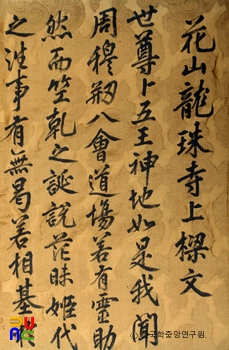 花山龍珠寺上樑文
世尊卜五王神地如是我聞
周穆刱八會道場若有靈助
然而竺乹之誕說茫昧姬代
之淮事有無曷若相基
국학중앙연구원